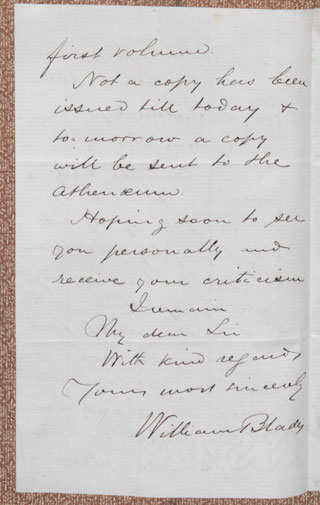 first volume.
Not a copy has been
issued till today &
to-morrow a copy
will be sent to the
Athenæum.
Hoping soon to see
you personally and
receive your criticism
I remain
My dear Sir
With kind regards
Yours most sincerely
William Blades